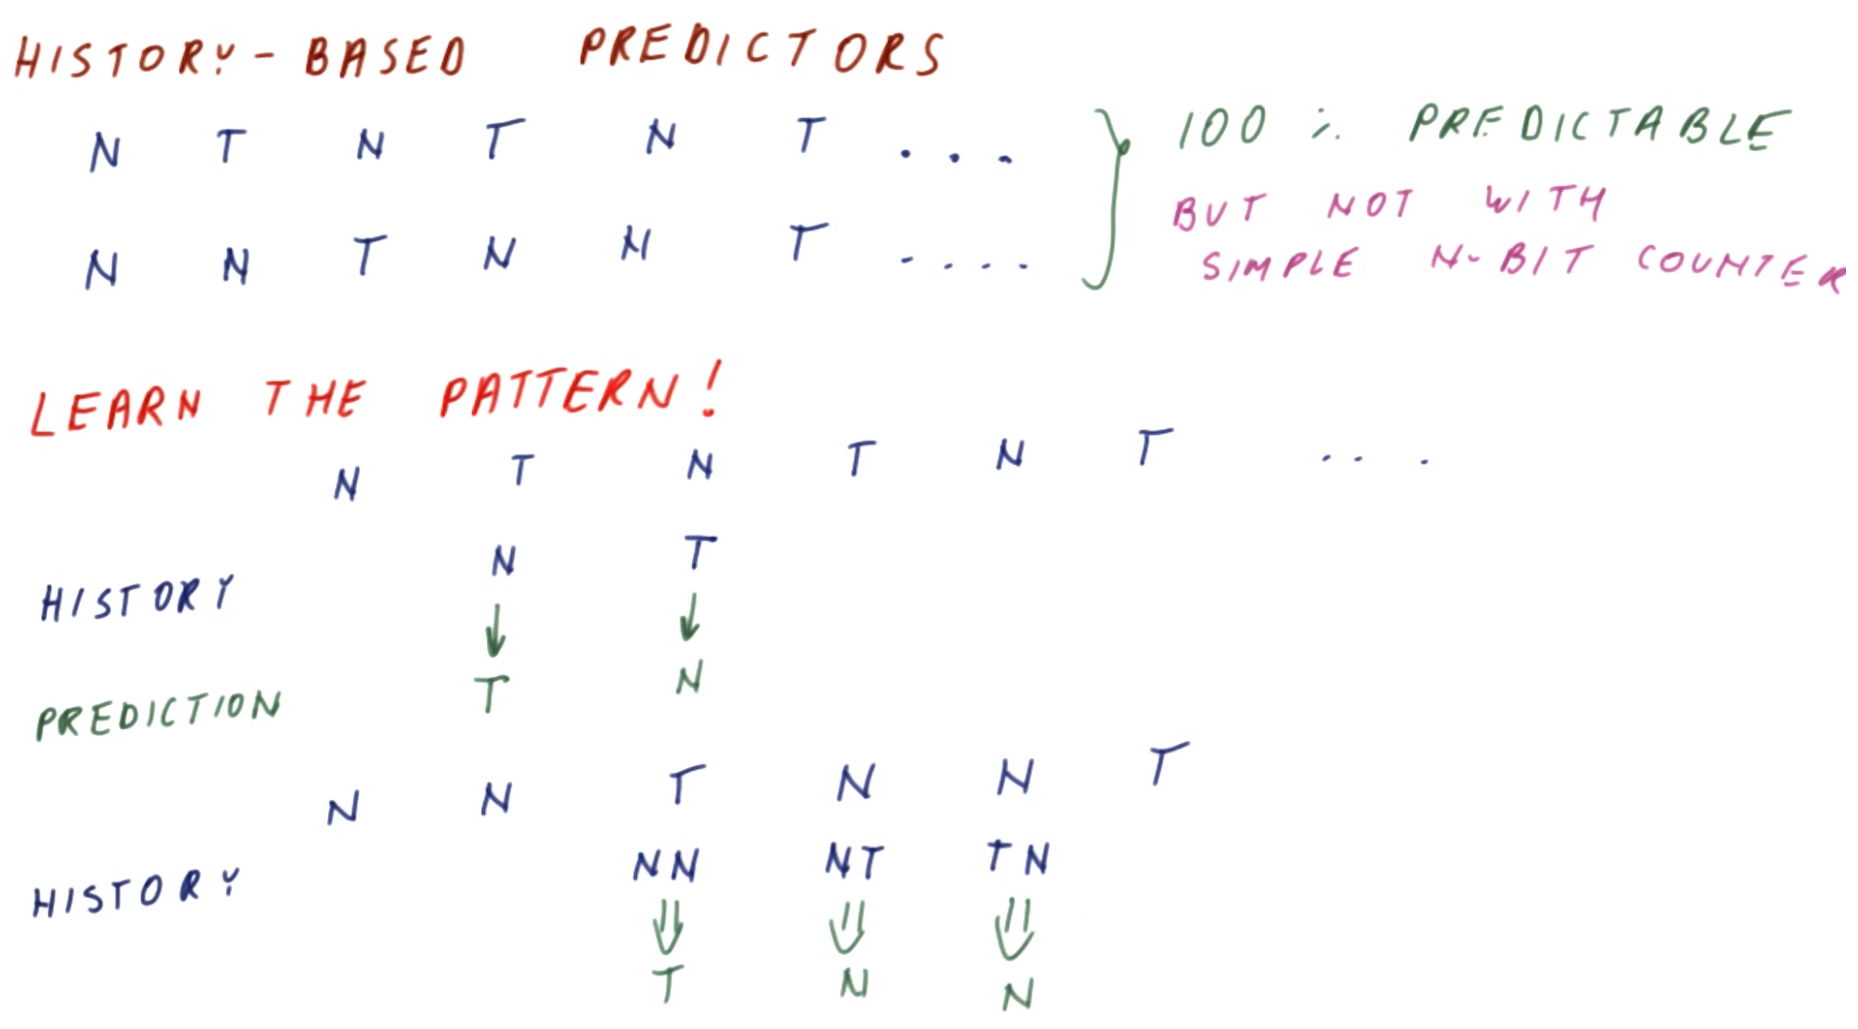 HISTORY-BASED PREDICTORS
N T N T N T ...
N N T N N T ....
100 % PREDICTABLE
BUT NOT WITH
SIMPLE N-BIT COUNTER
LEARN THE PATTERN!
N T N T N T ...
HISTORY N T
↓ ↓
PREDICTION T N
N N T N N T
HISTORY NN NT TN
⇓ ⇓ ⇓
T N N